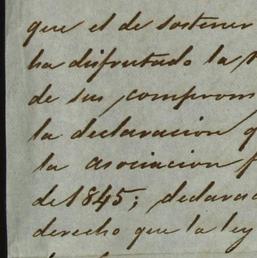 que el de sostener
ha disfrutado la
de sus comprom
la declaracion q
la asociacion f
de 1845; declarac
derecho que la ley